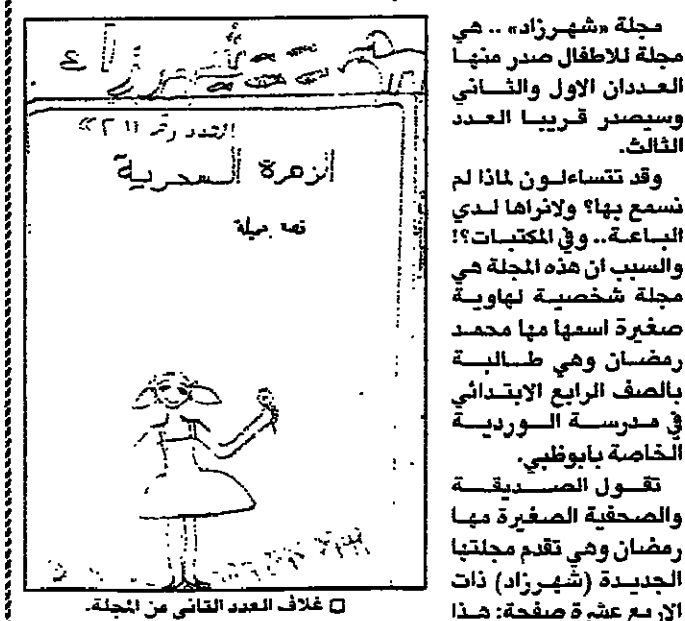 مجلة «شهرزاد» .. هي
مجلة للاطفال صدر منها
العددان الاول والثاني
وسيصدر قريبا العدد
الثالث.
وقد تتساءلون لماذا لم
نسمع بها؟ ولانراها لدي
الباعة.. وفي المكتبات؟!
والسبب ان هذه المجلة هي
مجلة شخصية لهاوية
صغيرة اسمها مها محمد
رمضان وهي طالبة
بالصف الرابع الابتدائي
في مدرسة الوردية
الخاصة بابوظبي.
تقول الصديقة
والصحفية الصغيرة مها
رمضان وهي تقدم مجلتها
الجديدة (شهرزاد) ذات
الاربع عشرة صفحة: هذا
العدد رقم
الزهرة السحرية
قصة جميلة
غلاف العدد الثاني من المجلة.